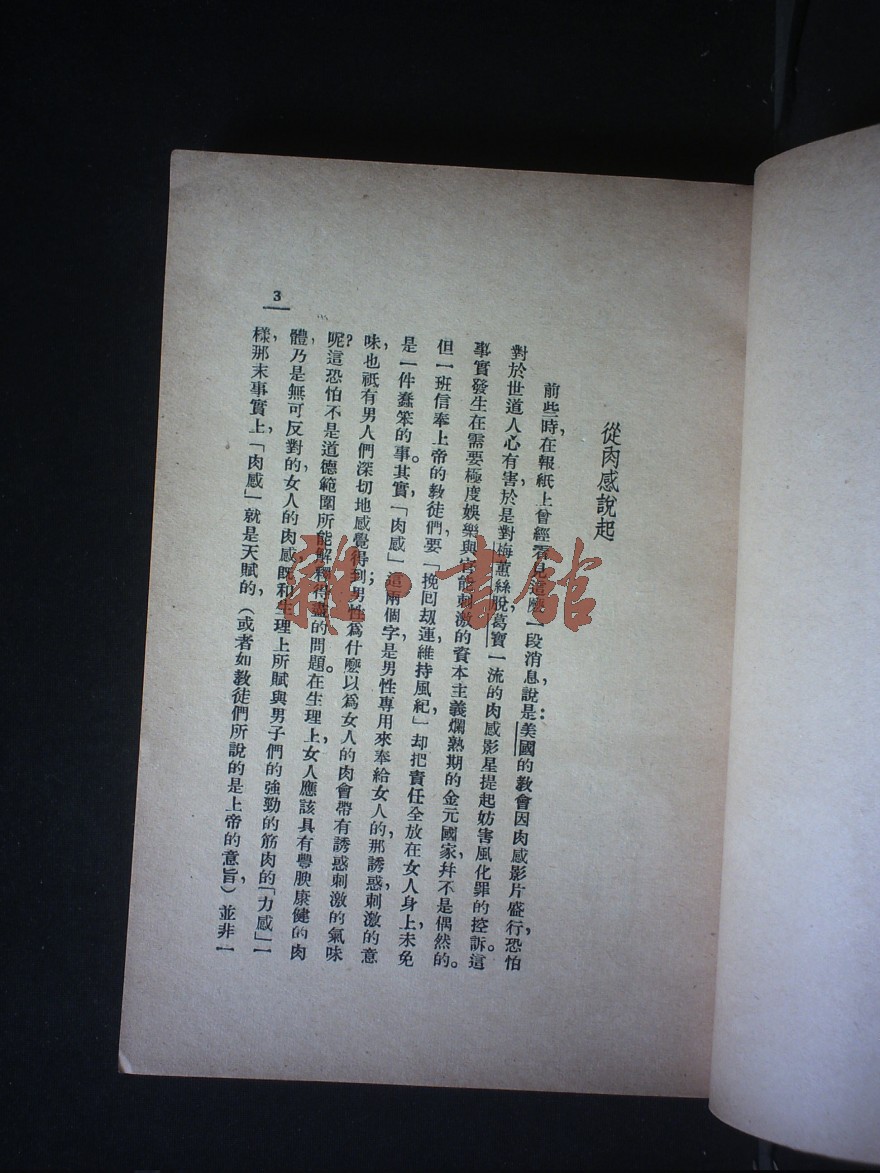 從肉感說起
前些時，在報紙上曾經看見這麼一段消息，說是：美國的教會因肉感影片盛行，恐怕
對於世道人心有害，於是對梅蕙絲，脫葛寶一流的肉感影星提起妨害風化罪的控訴。這
事實發生在需要極度娛樂與官能刺激的資本主義爛熟期的金元國家幷不是偶然的。
但一班信奉上帝的教徒們，要「挽囘刼運，維持風紀」却把責任全放在女人身上，未免
是一件蠢笨的事。其實，「肉感」這兩個字是男性專用來奉給女人的，那誘惑，刺激的意
味也祇有男人們深切地感覺得到；男性爲什麼以爲女人的肉會帶有誘惑刺激的氣味
呢？這恐怕不是道德範圍所能解釋得盡的問題。在生理上，女人應該具有豐腴康健的肉
體，乃是無可反對的，女人的肉感既和生理上所賦與男子們的強勁的筋肉的「力感」一
樣，那末事實上，「肉感」就是天賦的，（或者如教徒們所說的是上帝的意旨）並非一
3
雜·書館